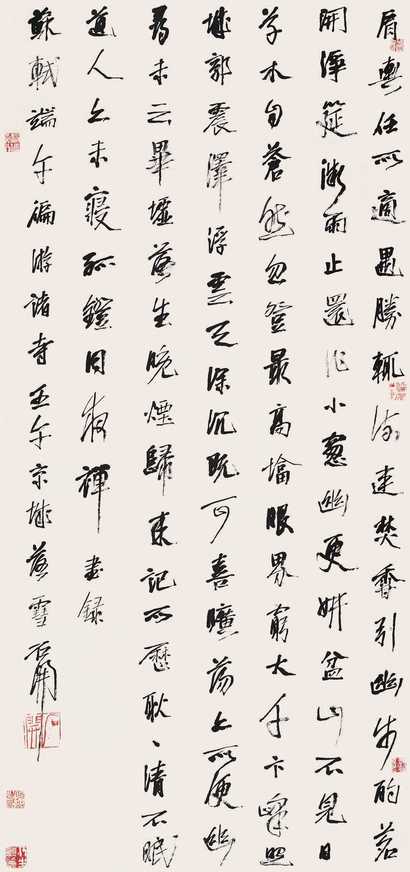 肩輿任所適遇勝輒留連焚香引幽步酌茗
開淨筵微雨止還作小窻幽更妍盆山不見日
草木自蒼然忽登最高塔眼界窮大千卞峰照
城郭震澤浮雲天深沉既可喜曠蕩亦所便幽
尋未云畢墟落生晚煙歸來記所歷耿〻清不眠
道人亦未寢孤鐙同夜禪書錄
蘇軾端午徧游諸寺壬午京城雪石開